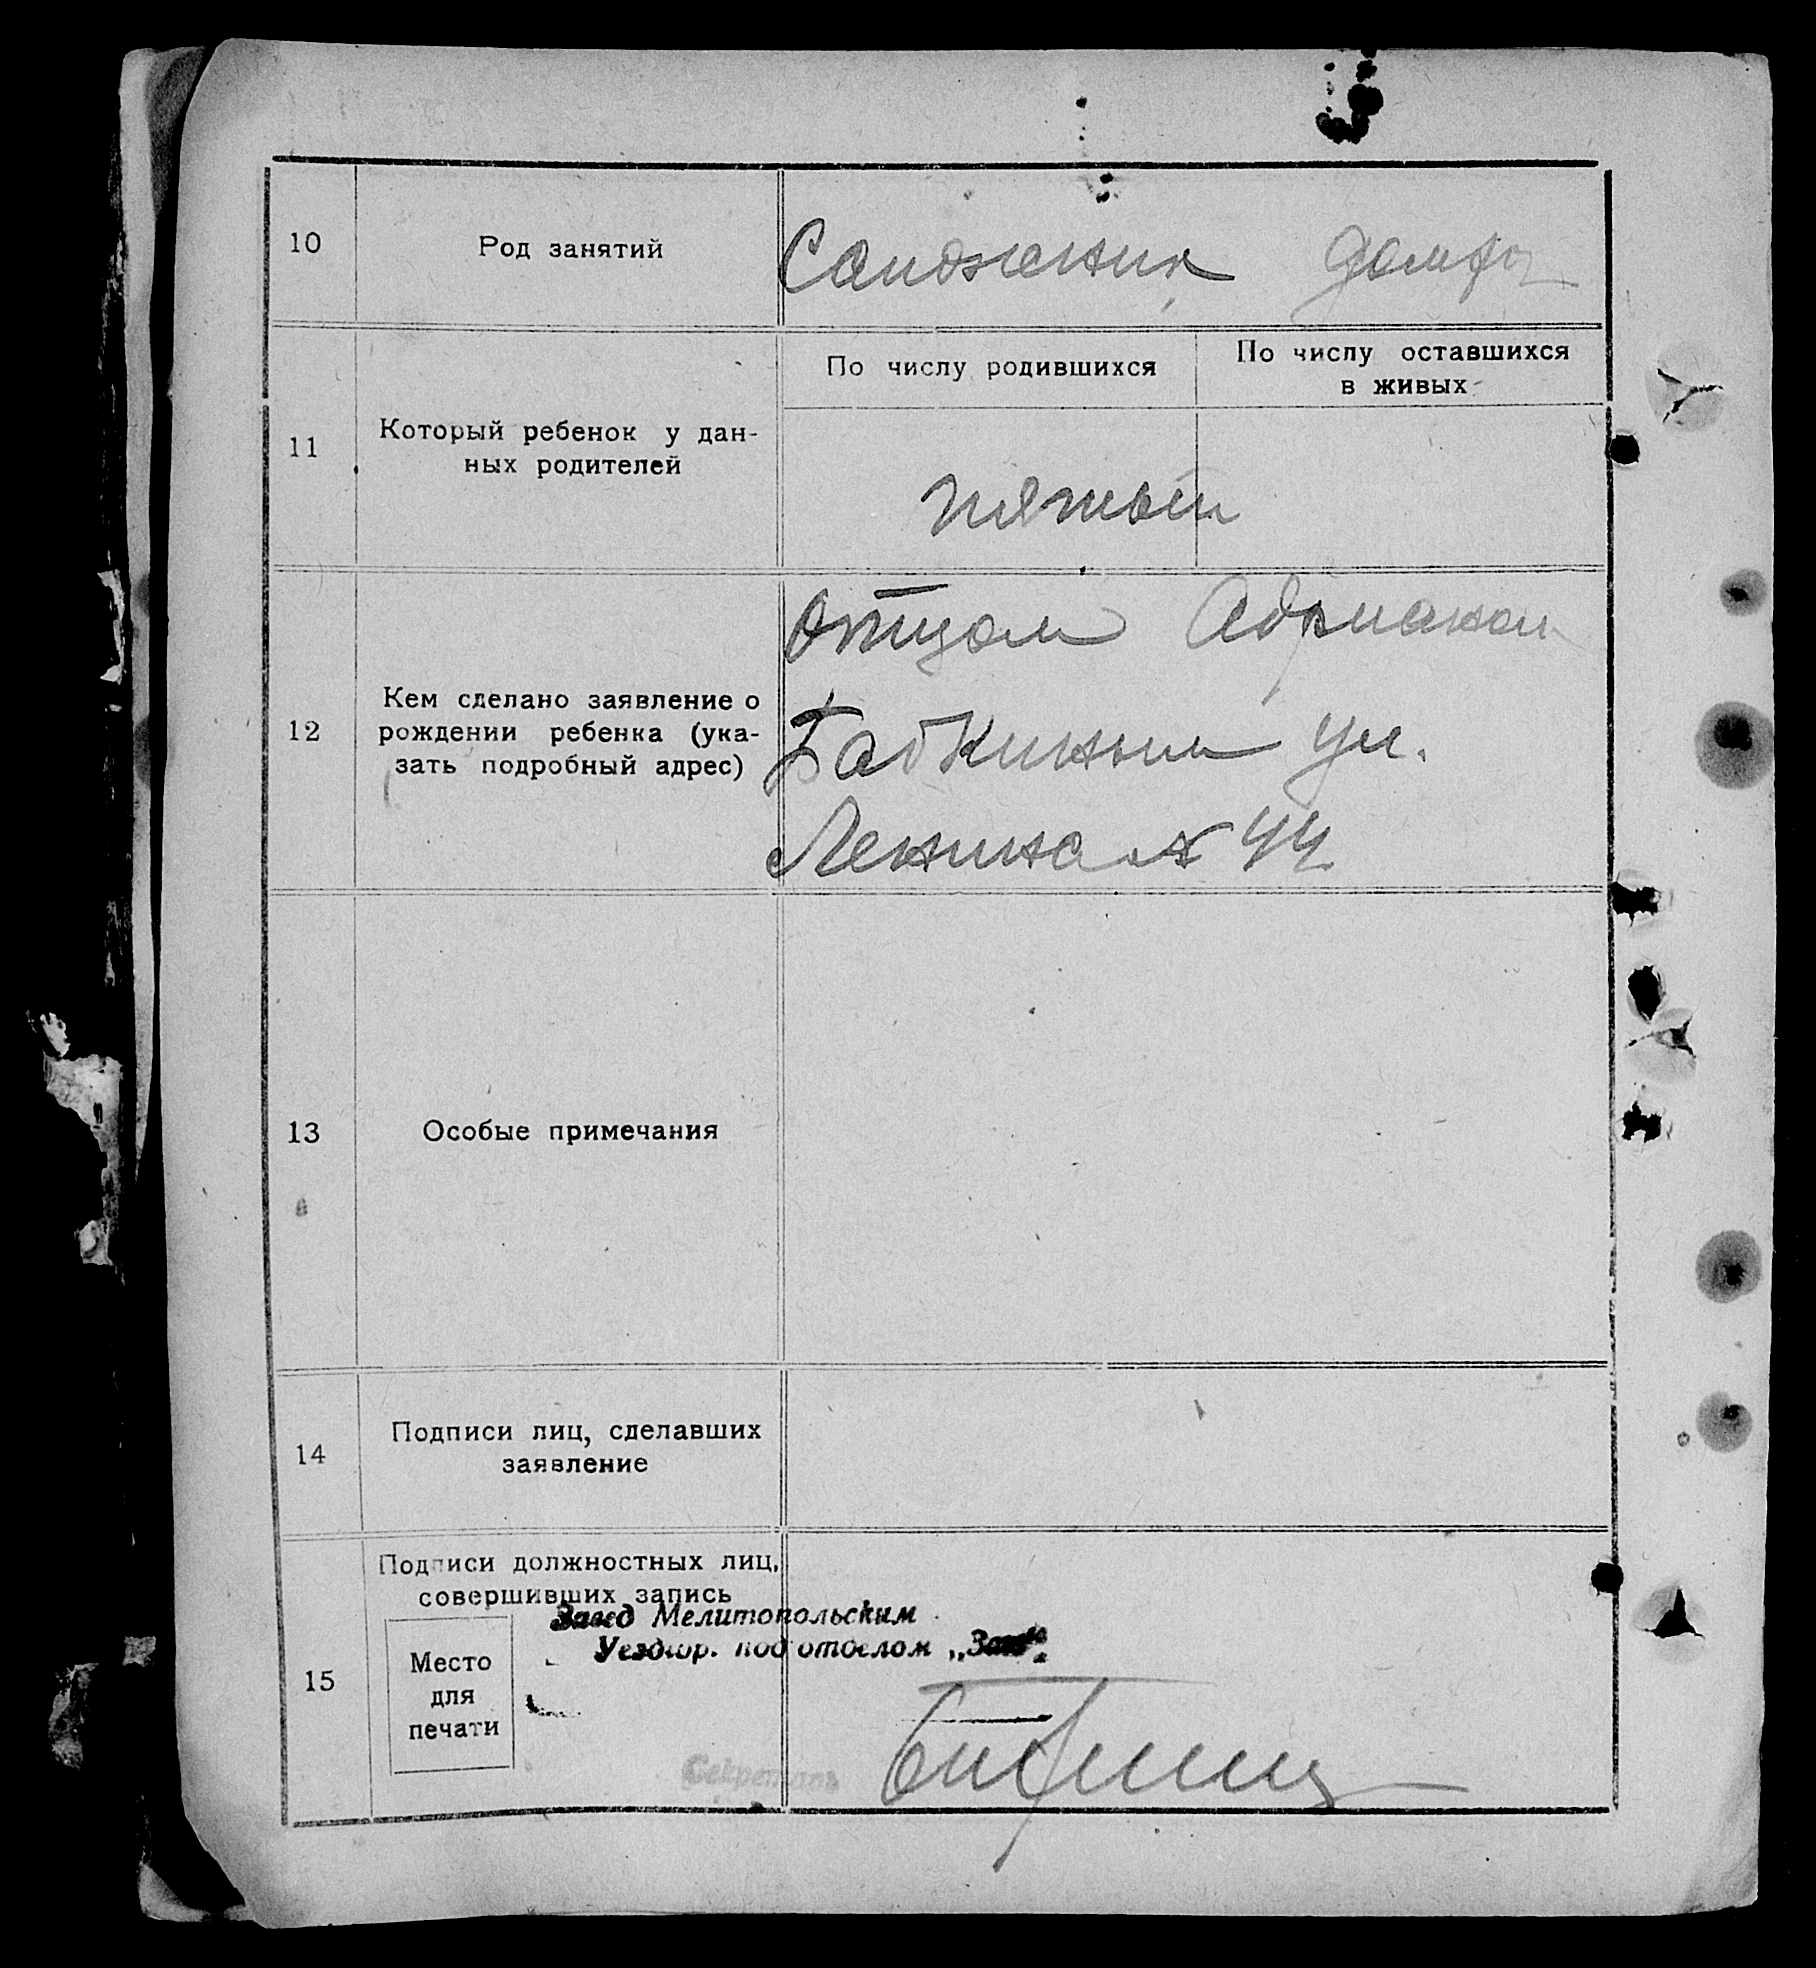 10 Род занятий Сапожник домхоз
По числу родившихся По числу оставшихся
в живых
11 Который ребенок у дан-
ных родителей
пятый
отцом Адрианом
12 Кем сделано заявление о
рождении ребенка (ука-
зать подробный адрес)
Бабкиным ул.
Ленина № 44
13 Особые примечания
14 Подписи лиц, сделавших
заявление
15 Подписи должностных лиц,
совершивших запись
Завед Мелитопольским
Уездгор. подотделом „Загс“.
Место
для
печати
Секретарь